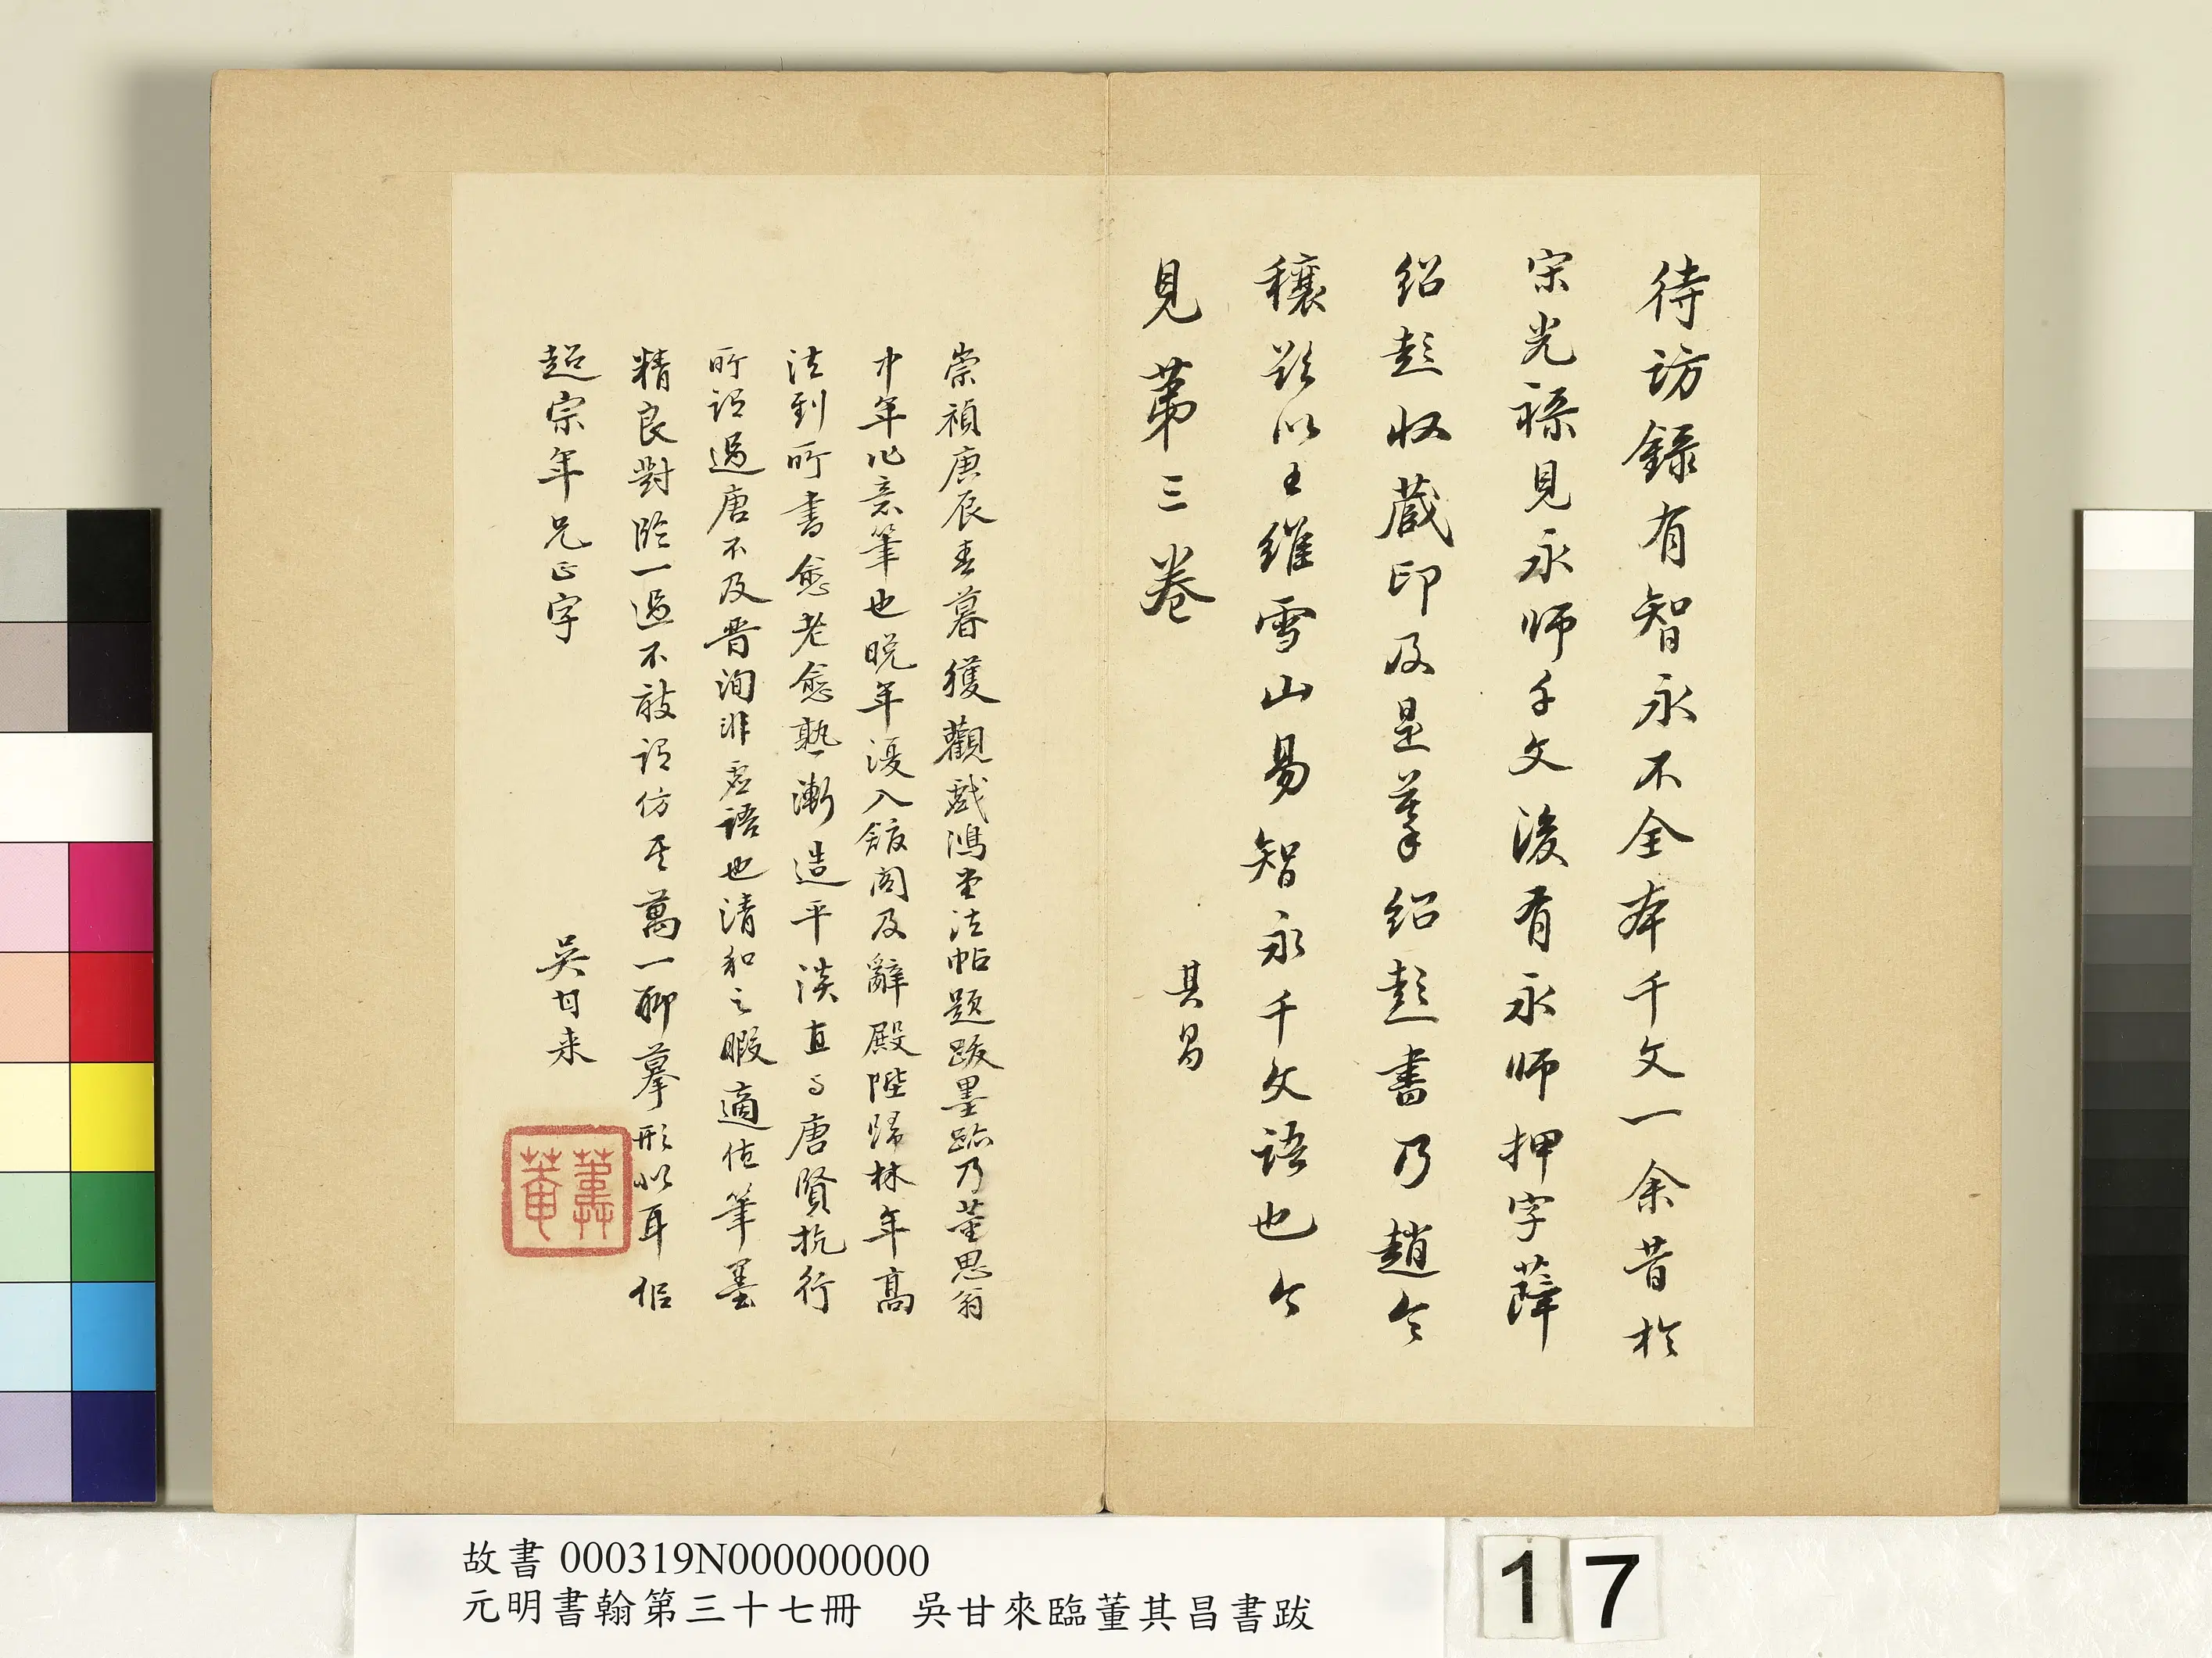 待訪錄有智永不全本千文一余昔於
宋光祿見永師千文後有永師押字薛
紹彭收藏印及是摹紹彭書乃趙令
穰欵以王維雪山易智永千文語也今
見第三卷
其昌
崇禎庚辰春暮獲觀戲鴻堂法帖題跋墨跡乃董思翁
中年作意筆也晚年浸入館閣及辭殿陛歸林年高
法到所書愈老愈熟漸造平淡直與唐賢抗行
所謂過唐不及晉洵非虛語也清和之暇適值筆墨
精良對臨一過不敢謂仿其萬一聊摹形似耳
超宗年兄正字
吳甘来
故書 000319N000000000
元明書翰第三十七冊 吳甘來臨董其昌書跋
17